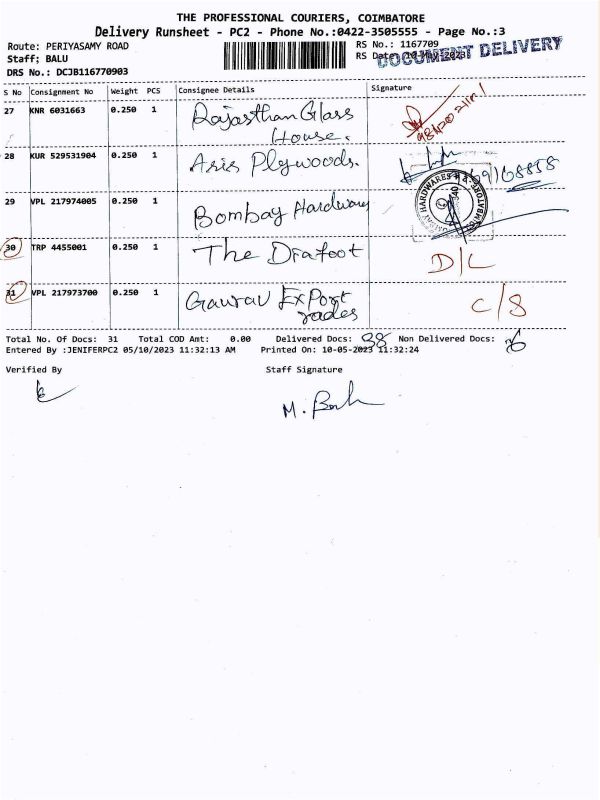 THE PROFESSIONAL COURIERS, COIMBATORE
Delivery Runsheet - PC2 - Phone No.:0422-3505555 - Page No.:3
Route: PERIYASAMY ROAD
RS No.: 1167709
Staff: BALU
RS Date: 10-May-2023
DOCUMENT DELIVERY
DRS No.: DCJB116770903
S No Consignment No Weight PCS Consignee Details Signature
27 KNR 6031663 0.250 1 Rajasthan Glass
House.
28 KUR 529531904 0.250 1 Asis Plywoods.
29 VPL 217974005 0.250 1 Bombay Hardwares
30 TRP 4455001 0.250 1 The Drafoot D/L
31 VPL 217973700 0.250 1 Gaurav Export C/S
rades
Total No. Of Docs: 31 Total COD Amt: 0.00 Delivered Docs: Non Delivered Docs:
Entered By :JENIFERPC2 05/10/2023 11:32:13 AM Printed On: 10-05-2023 11:32:24
Verified By Staff Signature